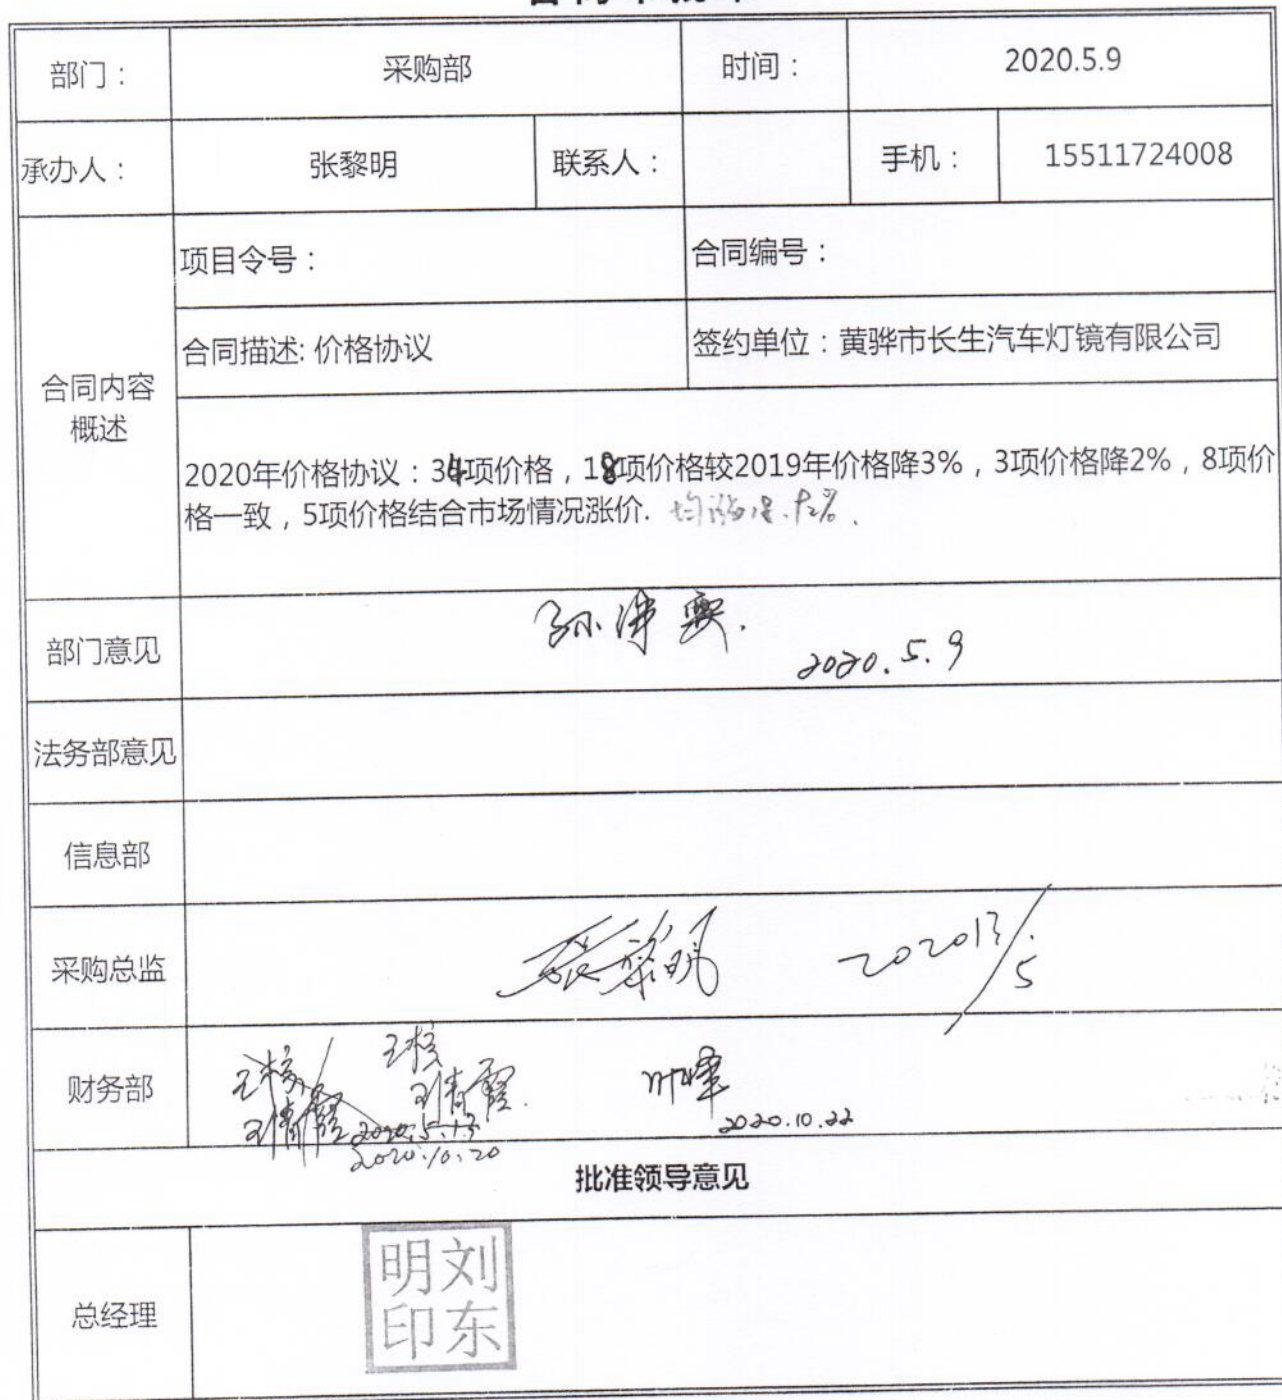 部门： 采购部 时间： 2020.5.9
承办人： 张黎明 联系人： 手机： 15511724008
合同内容
概述
项目令号： 合同编号：
合同描述: 价格协议 签约单位：黄骅市长生汽车灯镜有限公司
2020年价格协议：34项价格，18项价格较2019年价格降3%，3项价格降2%，8项价
格一致，5项价格结合市场情况涨价.
部门意见
2020.5.9
法务部意见
信息部
采购总监 张黎明
财务部
王清霞
2020.5.13
2020.10.20
2020.10.22
批准领导意见
总经理
刘东
明印